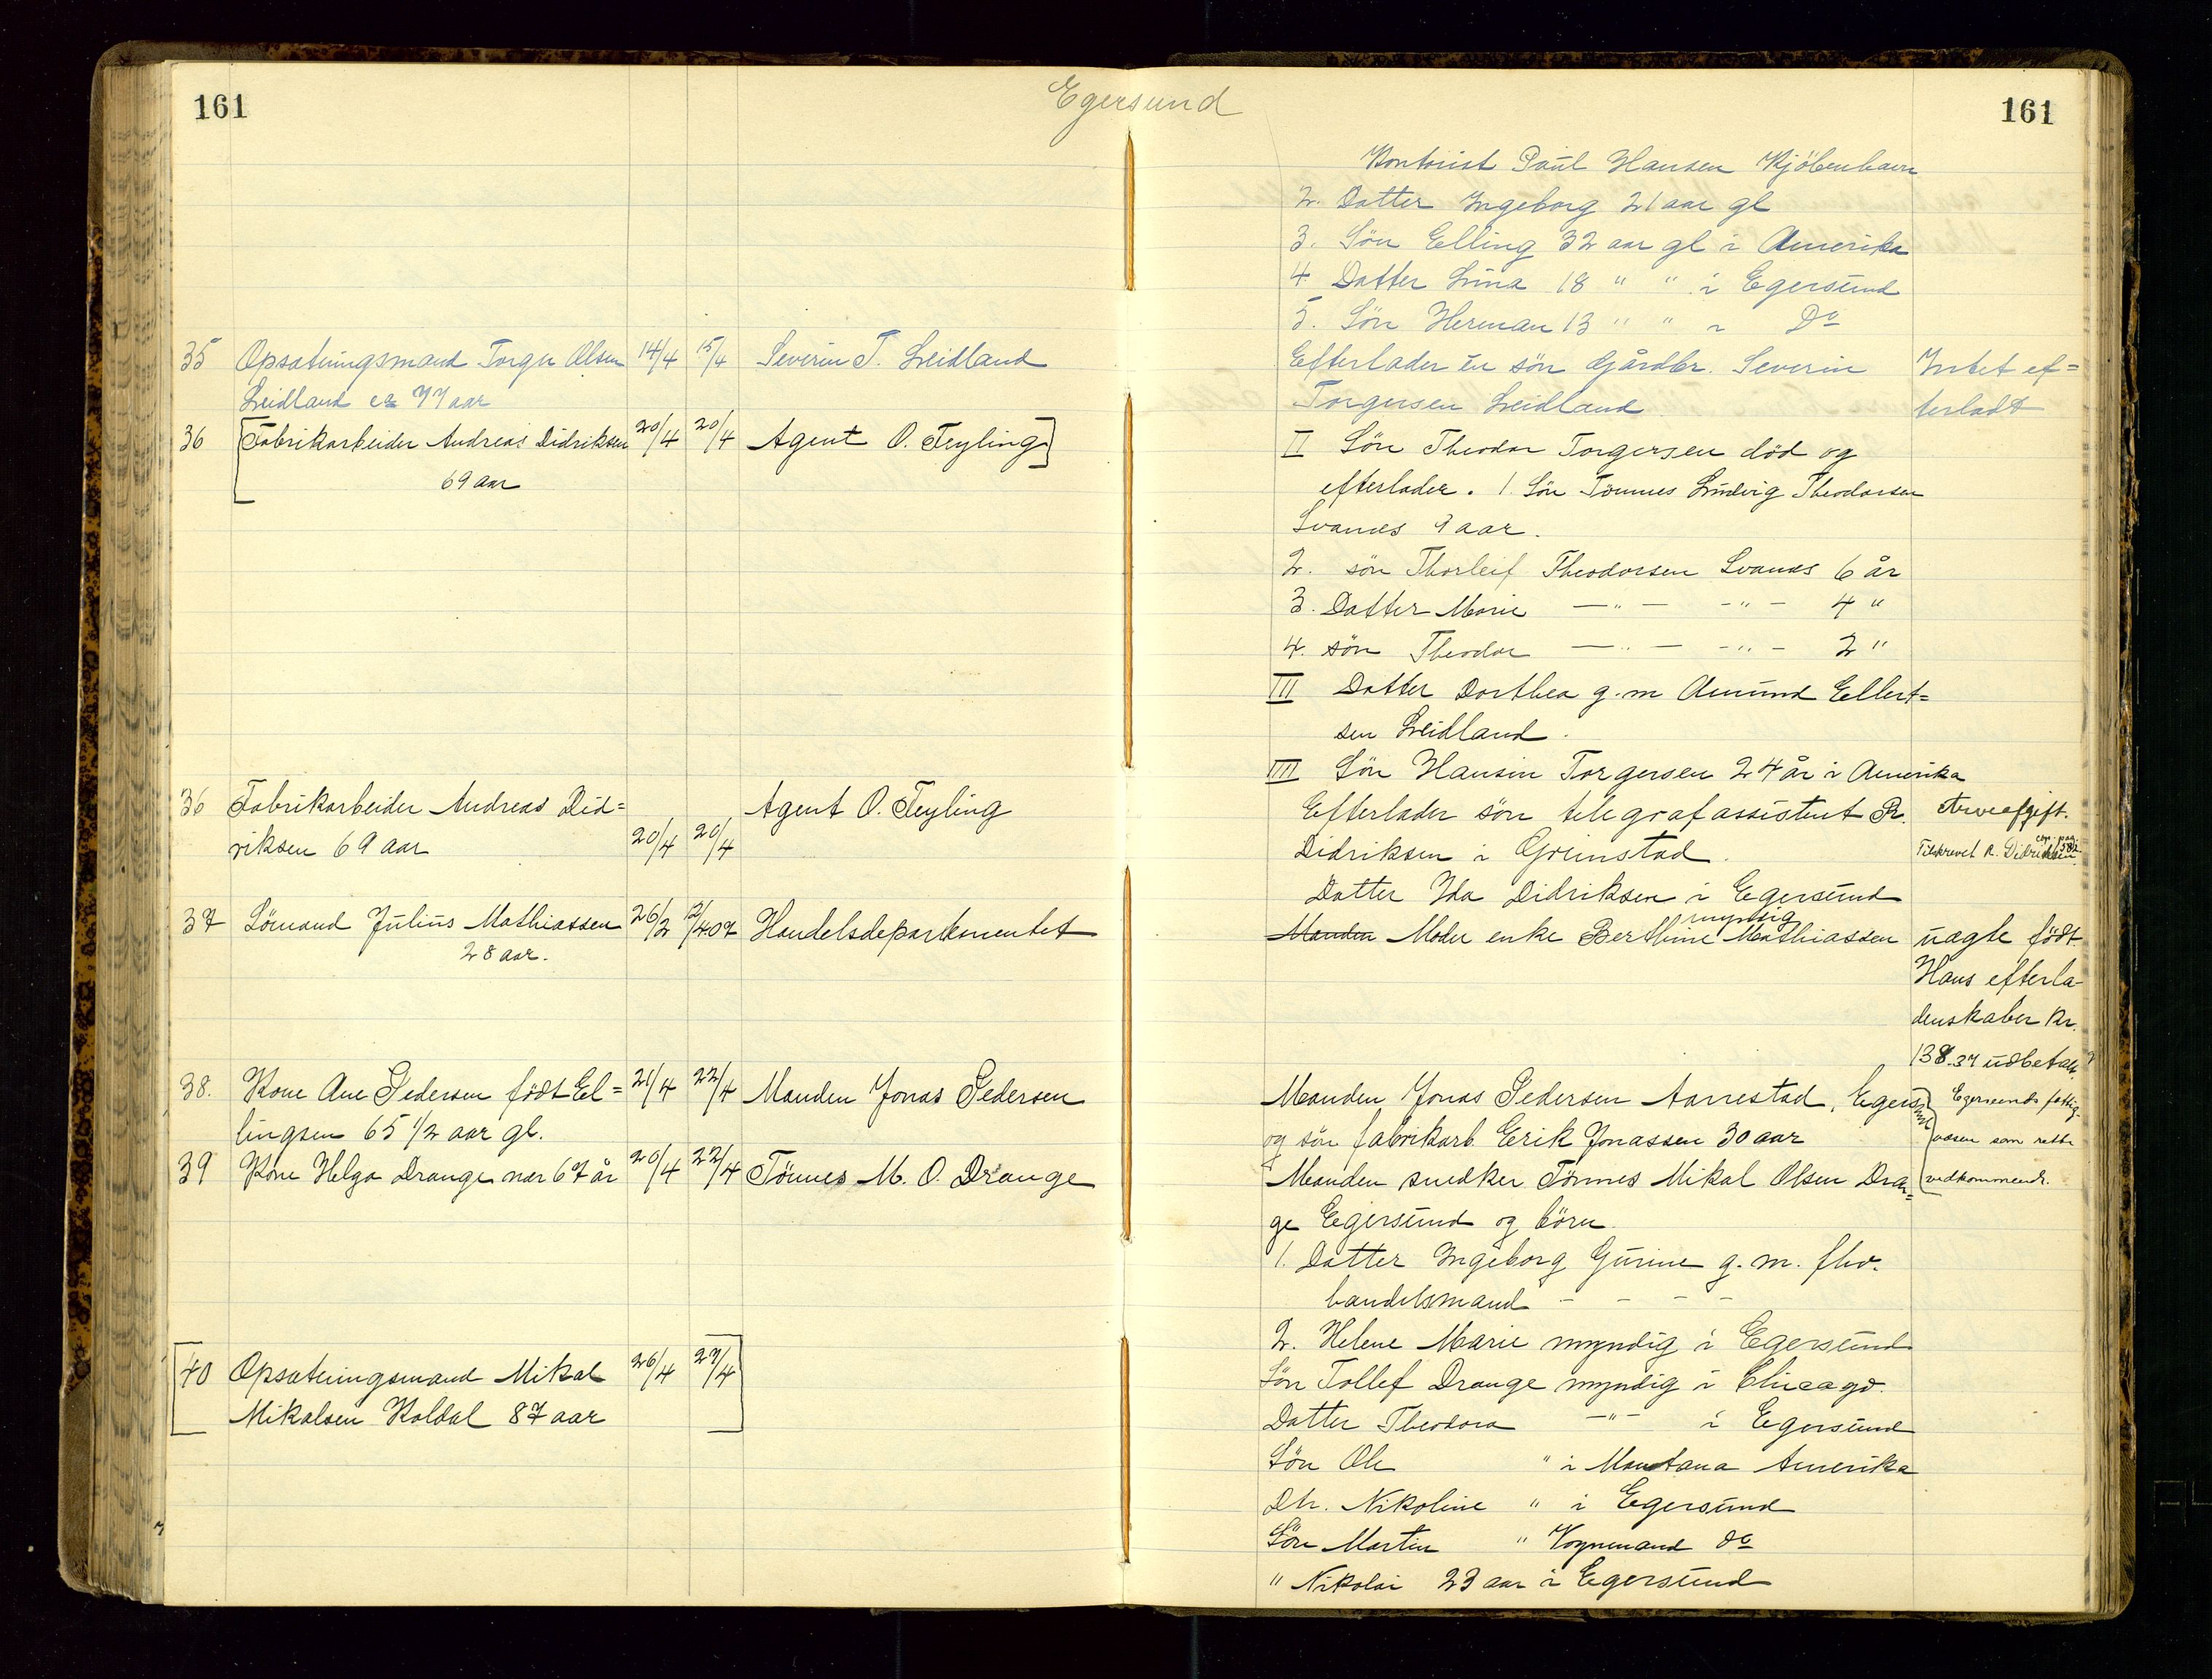 161
Egersund
161
Kontorist Paul Hansen Kjöbenhavn
2. Datter Ingeborg 21 aar gl
3. Sön Elling 32 aar gl i Amerika
4. Datter Lina 18 " " i Egersund
5. Sön Herman 13 " " i Do
35 Opsætningsmand Torger Olsen 14/4 15/4 Severin T. Leidland
Efterlader en sön Gårdbr. Severin Intet ef=
Leidland ca 77 aar
Torgersen Leidland terladt
36 [Fabrikarbeider Andreas Didriksen 20/4 20/4 Agent O. Feyling]
69 aar
II Sön Theodor Torgersen död og
efterlader. 1. Sön Tönnes Ludvig Theodorsen
Svanes 9 aar.
2. sön Thorleif Theodorsen Svanes 6 år
3. Datter Marie —"— -"- 4 "
4. sön Theodor —"— -"- 2 "
III Datter Dorthea g.m Amund Ellert=
sen Leidland.
IIII Sön Hansin Torgersen 24 år i Amerika
36 Fabrikarbeider Andreas Did=
riksen 69 aar 20/4 20/4 Agent O. Feyling
Efterlader sön telegrafassistent R. Arveafgift.
Didriksen i Grimstad. Tilskrevet R. Didriksen
Datter Ida Didriksen i Egersund
37 Sömand Julius Mathiassen 26/2 Handelsdepartementet
28 aar.
myndig
Manden Moder enke Berthine Mathiassen uægte födt
Hans efterla-
denskaber kr.
138.37 udbetalt
38. Kone Ane Pedersen födt El= 21/4 22/4 Manden Jonas Pedersen
lingsen 65 1/2 aar gl.
Manden Jonas Pedersen Aarrestad, Egersund Egersunds fattig-
og sön fabrikarb. Erik Jonassen 30 aar væsen som rette
39 Kone Helga Drange nær 67 år 20/4 22/4 Tönnes M. O. Drange
Manden snedker Tönnes Mikal Olsen Dran= vedkommende.
ge Egersund og börn.
1. Datter Ingeborg Gurine g.m. fhv.
handelsmand - - - -
2. Helene Marie myndig i Egersund
40 Opsætningsmand Mikal 26/4 27/4
Mikalsen Koldal 87 aar
Sön Tollef Drange myndig i Chicago.
Datter Theodora —"— i Egersund
Sön Ole " i Montana Amerika
Dtr. Nikoline " i Egersund
Sön Martin " Vognmand do
" Nikolai 23 aar i Egersund